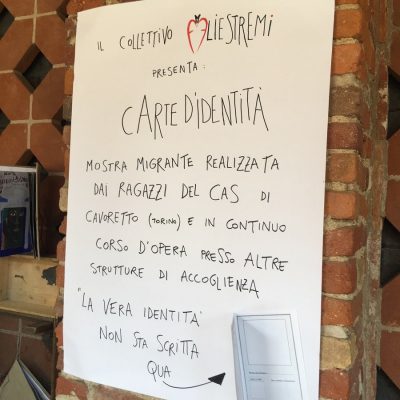 IL COLLETTIVO LIESTREMI
PRESENTA:
CARTE D'IDENTITÀ
MOSTRA MIGRANTE REALIZZATA
DAI RAGAZZI DEL CAS DI
CAVORETTO (TORINO) E IN CONTINUO
CORSO D'OPERA PRESSO ALTRE
STRUTTURE DI ACCOGLIENZA
"LA VERA IDENTITÀ
NON STA SCRITTA
QUA